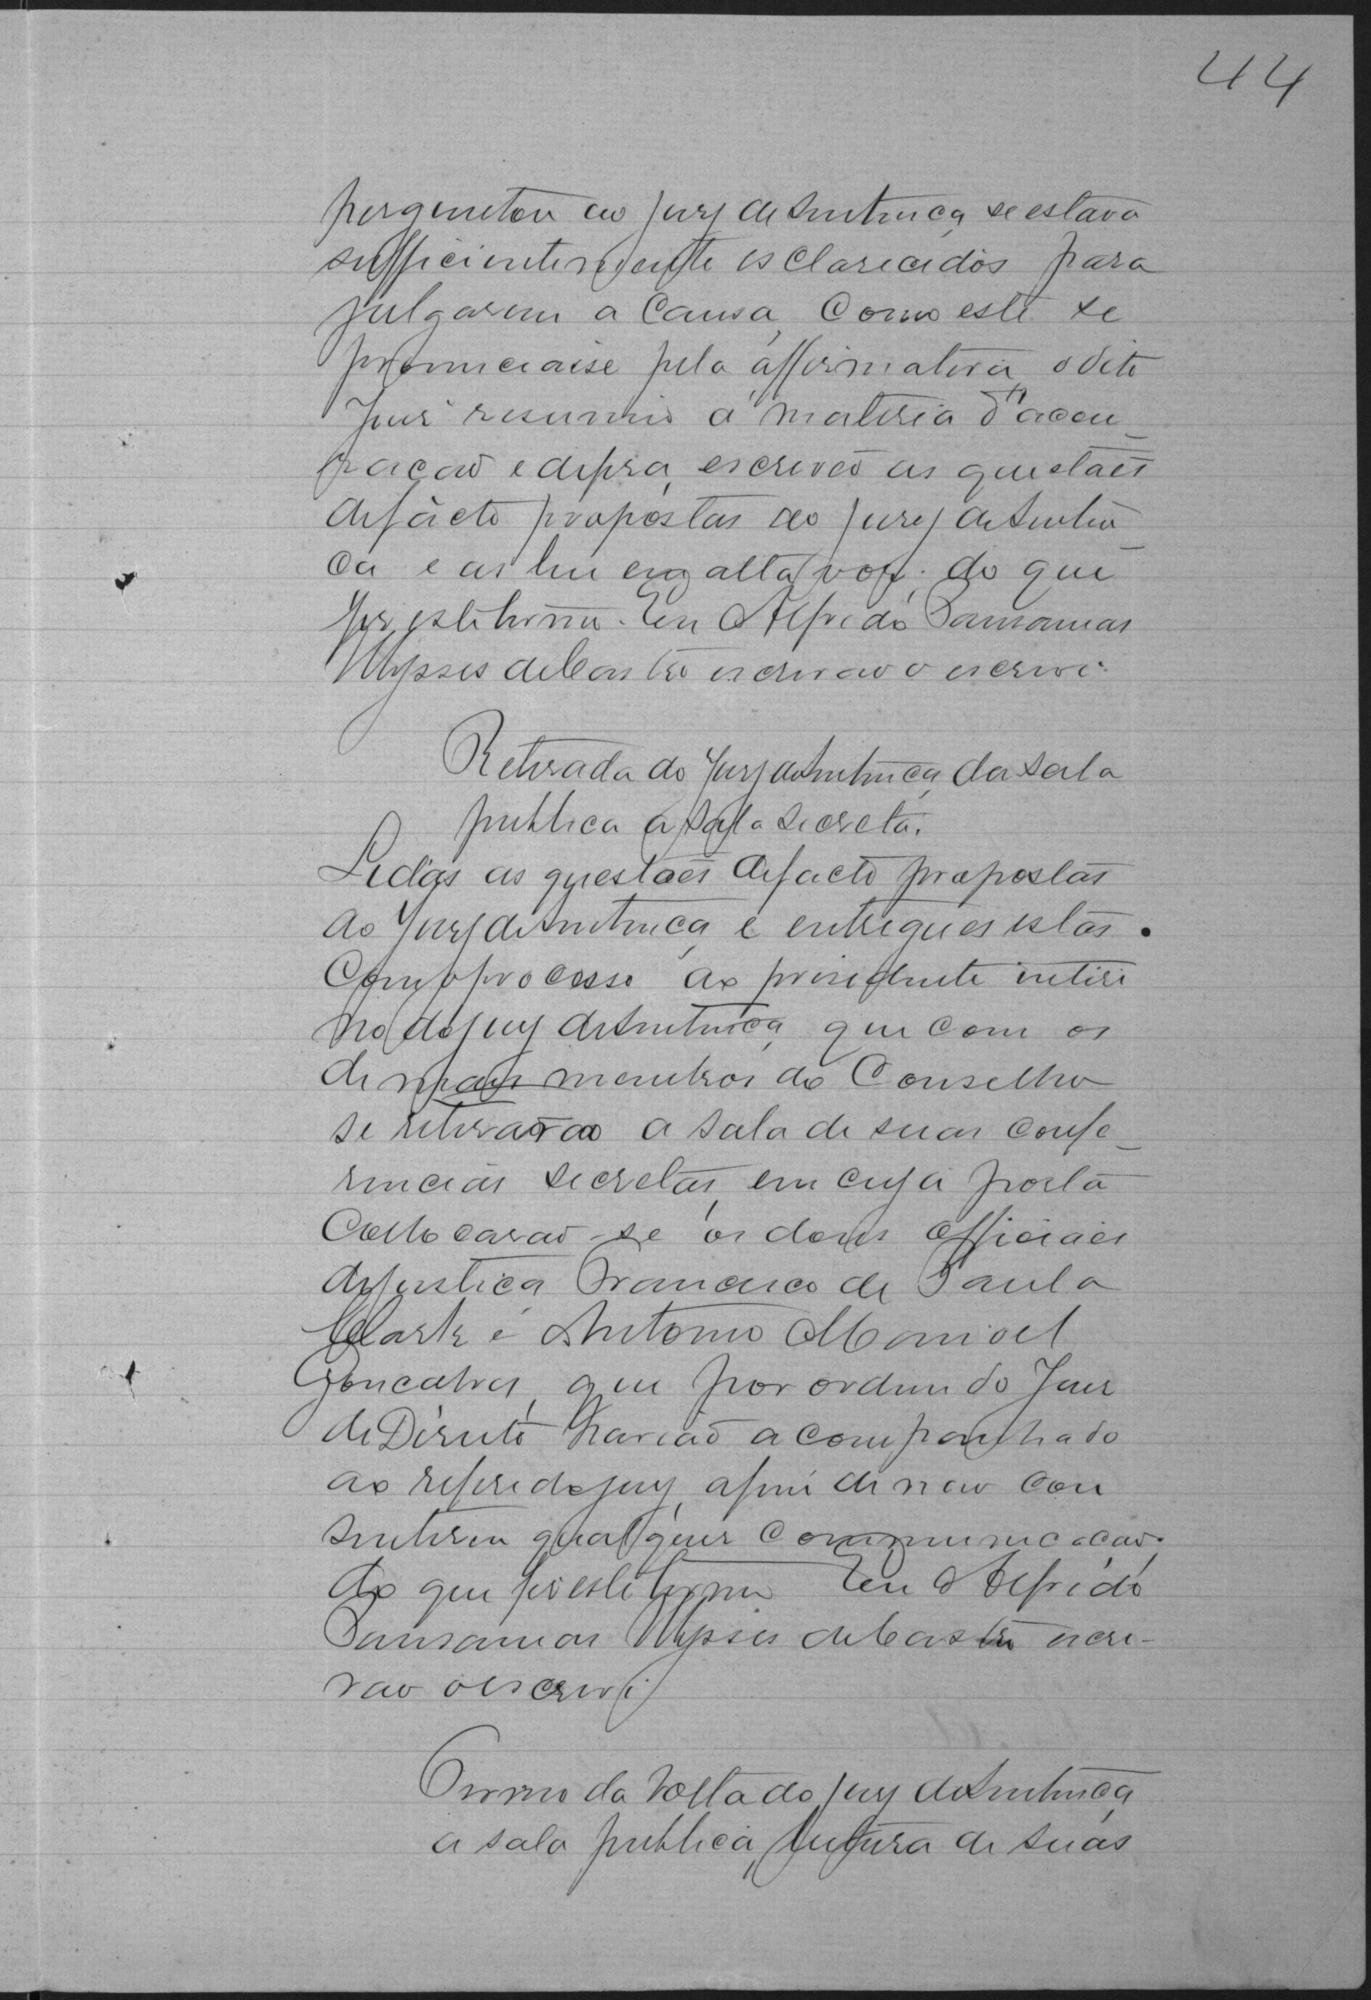 44
perguntou ao jury de Sentença se estava
sufficientemente esclarecidos para
julgarem a causa, Como este se
pronunciasse pela affirmativa, o dito
Juiz resumio a materia d'accu-
sação e defesa, escreveo as questões
de facto propostas ao jury de Senten-
ça e as leu em alta voz. do que
fiz este termo. Eu Alfredo Pausanias
Ulysses de Castro escrivão o escrevi.
Retirada do Jury de Sentença, da sala
publica a sala secreta.
Lidas as questões de facto propostas
ao Jury de Sentença, e entregues estas
com o processo ao presidente interi
no do jury de Sentença, que com os
demais membros do Conselho
se retirarão a sala de suas confe-
rencias secretas, em cuja porta
collocarão-se os dous officiaes
de justiça Francisco de Paula
e Antonio Manoel
Gonçalves, que por ordem do Juiz
de Direito havião acompanhado
ao referido jury, afim de não con
sentirem qualquer communicação.
do que fiz este termo Eu Alfredo
Pausanias Ulysses de Castro escri-
vão o escrevi
Termo da volta do jury de Sentença
a sala publica, leitura de suas